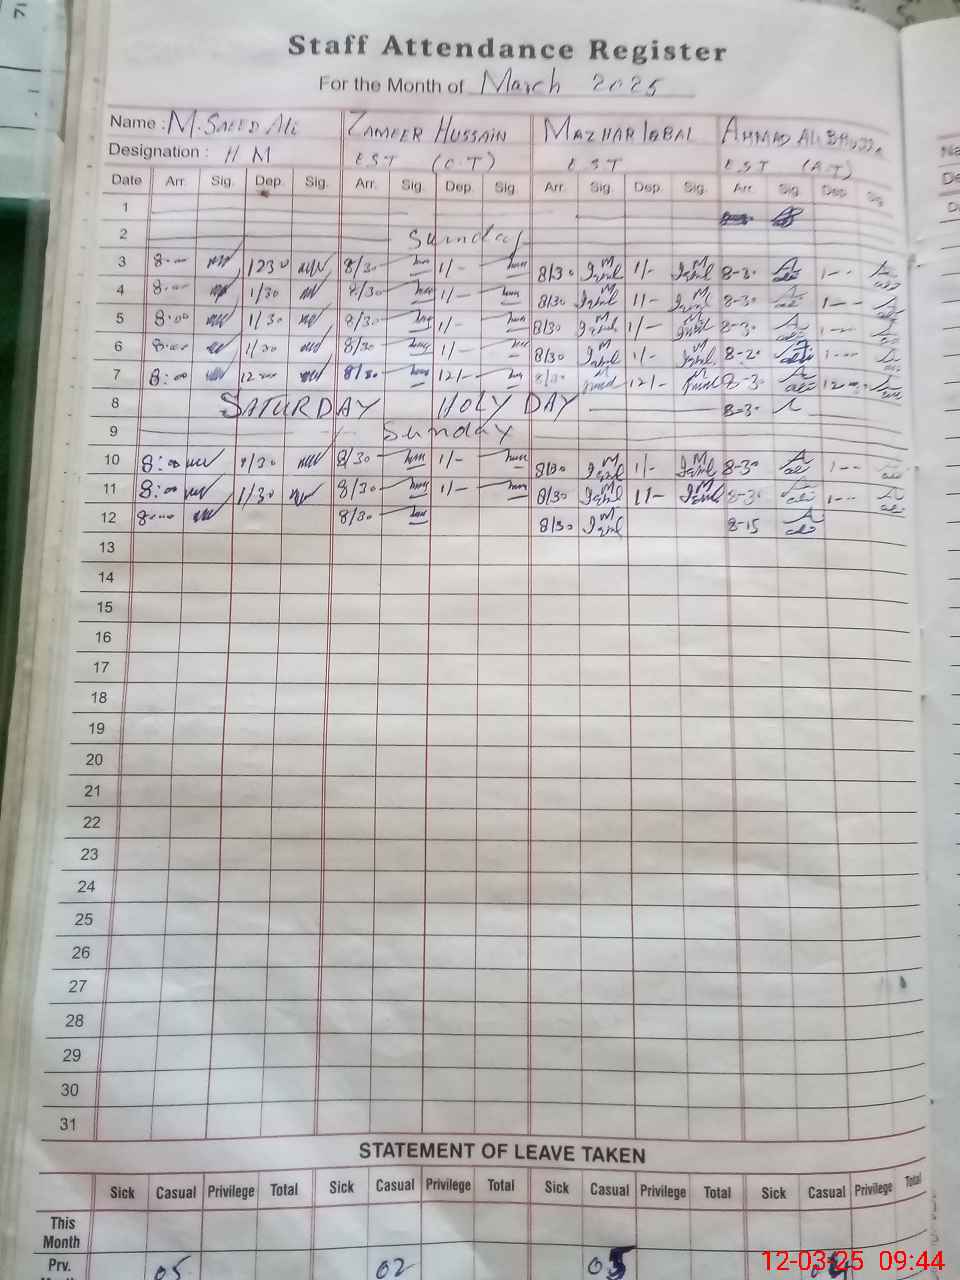 Staff Attendance Register
For the Month of March 2025
Name : M. SAEED Ali ZAMEER HUSSAIN MAZHAR IQBAL AHMAD ALI
Designation : H M EST (C.T) EST EST (A.T)
Date Arr. Sig. Dep. Sig. Arr. Sig. Dep. Sig. Arr. Sig. Dep. Sig. Arr. Sig. Dep. Sig.
1
2 Sunday
3 8:00 1230 8/30 1/- 8/30 Iqbal 1/- M Iqbal 8-30 1--
4 8:00 1/30 8/30 1/- 8/30 Iqbal 1/- M Iqbal 8-30 1--
5 8:00 1/30 8/30 1/- 8/30 Iqbal 1/- M Iqbal 8-30 1--
6 8:00 1/30 8/30 1/- 8/30 Iqbal 1/- M Iqbal 1--
7 8:00 12 8/30 12/- 8/30 12/- 8-30 12
8 SATURDAY HOLY DAY 8-30
9 Sunday
10 8:00 1/30 8/30 1/- 8/30 M Iqbal 1/- M Iqbal 8-30 1--
11 8:00 1/30 8/30 1/- 8/30 M Iqbal 1/- M Iqbal 8-30 1--
12 8:00 8/30 8/30 M Iqbal 8-15
13
14
15
16
17
18
19
20
21
22
23
24
25
26
27
28
29
30
31
STATEMENT OF LEAVE TAKEN
Sick Casual Privilege Total Sick Casual Privilege Total Sick Casual Privilege Total Sick Casual Privilege Total
This
Month
Prv. 05 02 03
12-03-25 09:44